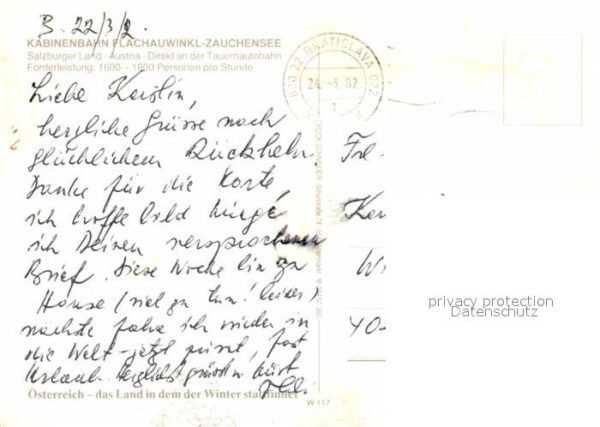 B. 22/3/2.
KABINENBAHN FLACHAUWINKL-ZAUCHENSEE
Salzburger Land · Austria · Direkt an der Tauernautobahn
Förderleistung: 1600 – 1800 Personen pro Stunde
BRATISLAVA 012
24.-3.82
1
Liebe Kerstin,
herzliche Grüsse nach
glücklichem Rückkehr.
Danke für die Karte,
ich hoffe bald kriege
ich Deinen versprochenen
Brief. Diese Woche bin zu
Hause (viel zu tun! leider)
nächste fahre ich wieder in
die Welt - jetzt
Urlaub. Herzlichst
Frl.
Ker
W
40-
privacy protection
Datenschutz
Österreich – das Land in dem der Winter stattfindet
W 117